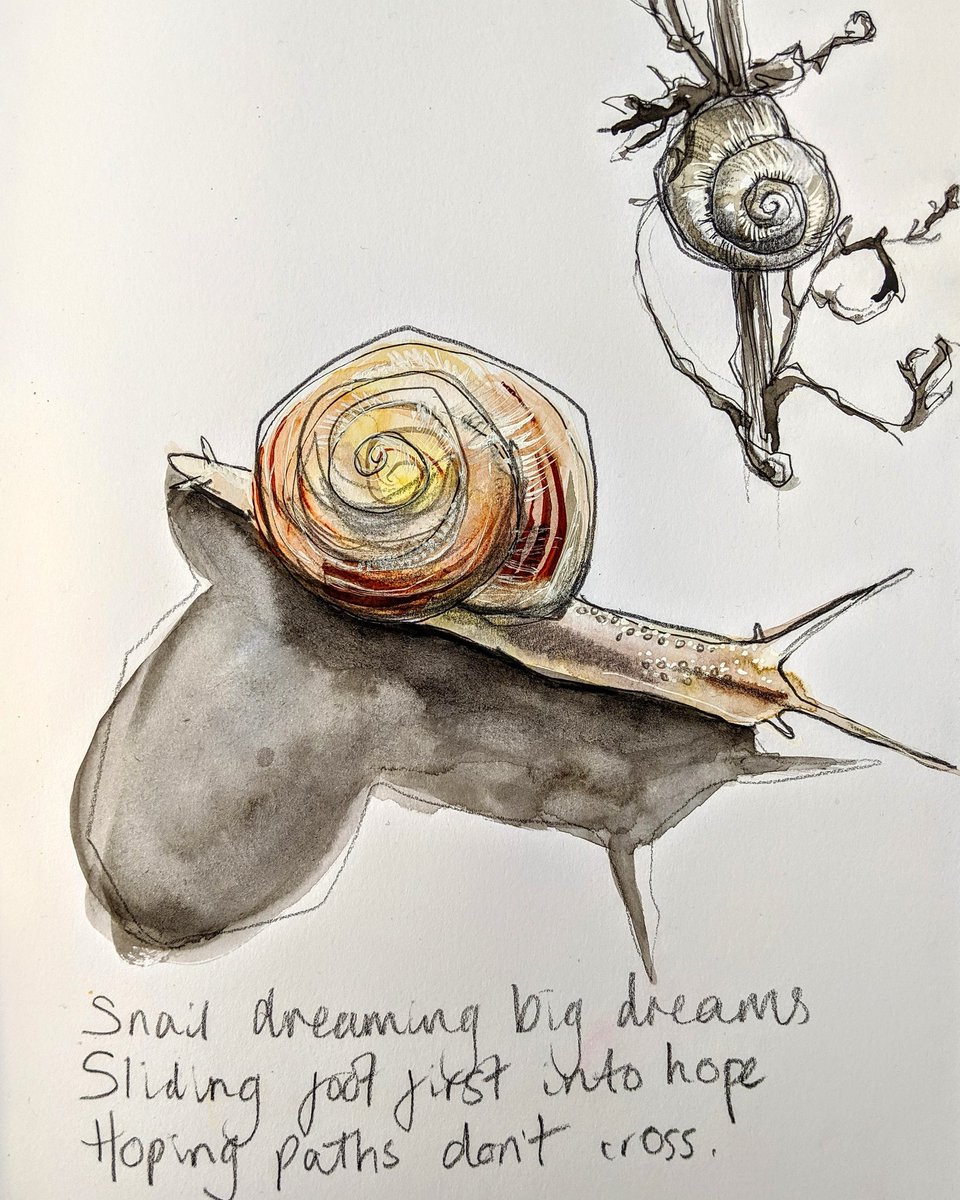 Snail dreaming big dreams
Sliding foot first into hope
Hoping paths don't cross.